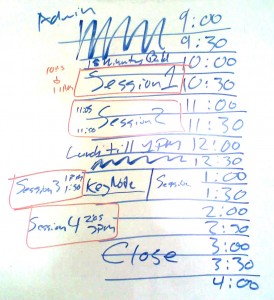 Admin
9:00
9:30
10:00
10AM
11AM
Session 1 10:30
11:00
11:05
Session 2
11:50
11:30
Lunch till 1PM 12:00
12:30
Session 3 1PM
1:50
KeyNote
Session
1:00
1:30
2:00
Session 4 2:05
3pm
2:30
Close
3:00
3:30
4:00